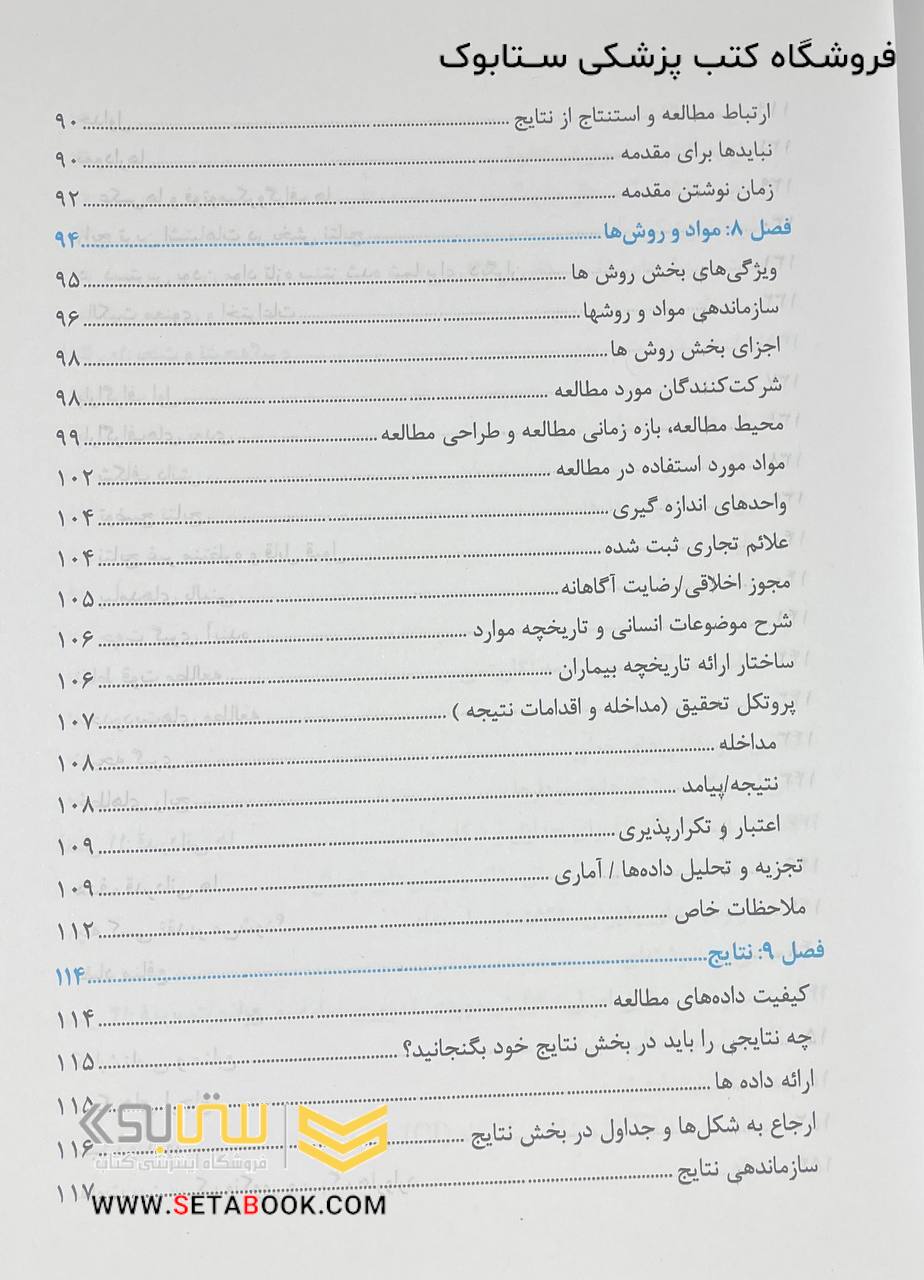 فروشگاه کتب پزشکی ستابوک
ارتباط مطالعه و استنتاج از نتایج ........ ۹۰
نبایدها برای مقدمه ........ ۹۰
زمان نوشتن مقدمه ........ ۹۲
فصل ۸: مواد و روش‌ها ........ ۹۴
ویژگی‌های بخش روش ها ........ ۹۵
سازماندهی مواد و روشها ........ ۹۶
اجزای بخش روش ها ........ ۹۸
شرکت‌کنندگان مورد مطالعه ........ ۹۸
محیط مطالعه، بازه زمانی مطالعه و طراحی مطالعه ........ ۹۹
مواد مورد استفاده در مطالعه ........ ۱۰۲
واحدهای اندازه گیری ........ ۱۰۴
علائم تجاری ثبت شده ........ ۱۰۴
مجوز اخلاقی/رضایت آگاهانه ........ ۱۰۵
شرح موضوعات انسانی و تاریخچه موارد ........ ۱۰۶
ساختار ارائه تاریخچه بیماران ........ ۱۰۶
پروتکل تحقیق (مداخله و اقدامات نتیجه ) ........ ۱۰۷
مداخله ........ ۱۰۸
نتیجه/پیامد ........ ۱۰۸
اعتبار و تکرارپذیری ........ ۱۰۹
تجزیه و تحلیل داده‌ها / آماری ........ ۱۰۹
ملاحظات خاص ........ ۱۱۲
فصل ۹: نتایج ........ ۱۱۴
کیفیت داده‌های مطالعه ........ ۱۱۴
چه نتایجی را باید در بخش نتایج خود بگنجانید؟ ........ ۱۱۵
ارائه داده ها ........ ۱۱۵
ارجاع به شکل‌ها و جداول در بخش نتایج ........ ۱۱۶
سازماندهی نتایج ........ ۱۱۷
ستابوک
فروشگاه اینترنتی کتاب
WWW.SETABOOK.COM